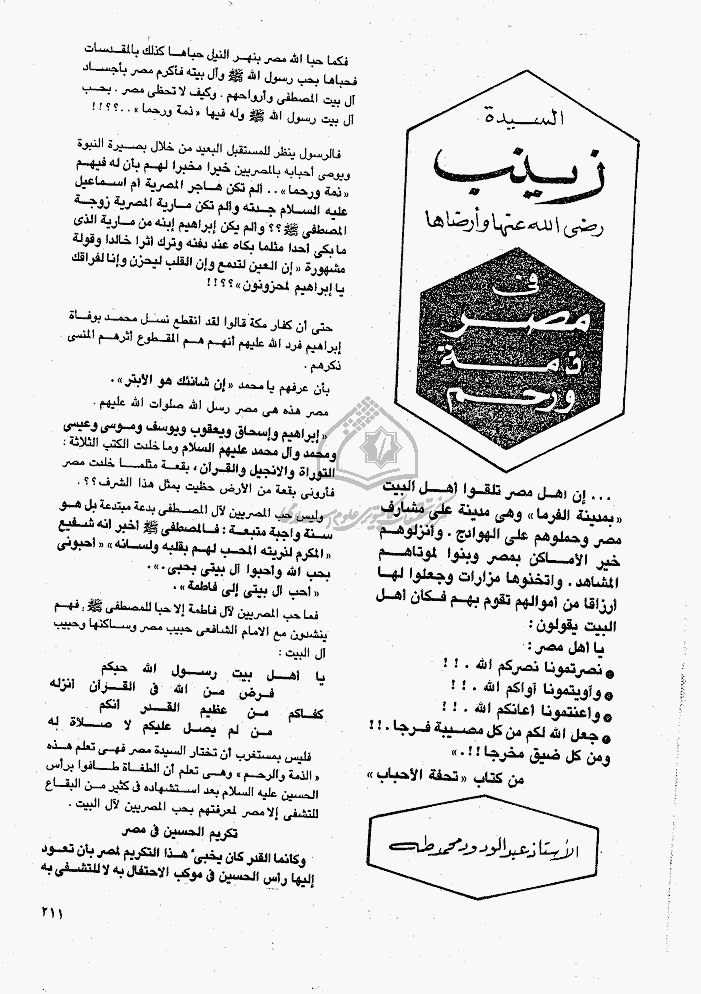 السيدة
زينب
رضى الله عنها وأرضاها
فى
مصر
ذمة
ورحم
... إن أهل مصر تلقوا أهل البيت
«بمدينة الفرما» وهى مدينة على مشارف
مصر وحملوهم على الهوادج . وأنزلوهم
خير الأماكن بمصر وبنوا لموتاهم
المشاهد . واتخذوها مزارات وجعلوا لها
أرزاقا من أموالهم تقوم بهم فكان أهل
البيت يقولون :
يا أهل مصر :
● نصرتمونا نصركم الله . ! !
● وأويتمونا أواكم الله . ! !
● وأعنتمونا أعانكم الله . ! !
● جعل الله لكم من كل مصيبة فرجا . !!
ومن كل ضيق مخرجا !! . »
من كتاب « تحفة الأحباب »
الأستاذ عبد الودود محمد طه
فكما حبا الله مصر بنهر النيل حباها كذلك بالمقدسات
فحباها بحب رسول الله ﷺ وآل بيته فأكرم مصر بأجساد
آل بيت المصطفى وأرواحهم . وكيف لا تحظى مصر . بحب
آل بيت رسول الله ﷺ وله فيها « ذمة ورحما » .. ؟؟ !!
فالرسول ينظر للمستقبل البعيد من خلال بصيرة النبوة
ويوصى أحبابه بالمصريين خيرا مخبرا لهم بأن له فيهم
« ذمة ورحما » .. ألم تكن هاجر المصرية أم اسماعيل
عليه السلام جدته وألم تكن مارية المصرية زوجة
المصطفى ﷺ ؟؟ وألم يكن إبراهيم إبنه من مارية الذى
ما بكى أحدا مثلما بكاه عند دفنه وترك أثرا خالدا وقولة
مشهورة « إن العين لتدمع وإن القلب ليحزن وإنا لفراقك
يا إبراهيم لمحزونون » ؟؟ !!
حتى أن كفار مكة قالوا لقد انقطع نسل محمد بوفاة
إبراهيم فرد الله عليهم أنهم هم المقطوع أثرهم المنسى
ذكرهم .
بأن عرفهم يا محمد « إن شانئك هو الأبتر » .
مصر هذه هى مصر رسل الله صلوات الله عليهم .
« إبراهيم وإسحاق ويعقوب ويوسف وموسى وعيسى
ومحمد وآل محمد عليهم السلام وما خلت الكتب الثلاثة :
التوراة والانجيل والقرآن ، بقعة مثلما خلت مصر
فأرونى بقعة من الأرض حظيت بمثل هذا الشرف ؟؟ .
وليس حب المصريين لآل المصطفى بدعة مبتدعة بل هو
سنة واجبة متبعة : فالمصطفى ﷺ أخبر أنه شفيع
« المكرم لذريته المحب لهم بقلبه ولسانه » « أحبونى
بحب الله وأحبوا آل بيتى بحبى . » .
« أحب آل بيتى إلى فاطمة » .
فما حب المصريين لآل فاطمة إلا حبا للمصطفى ﷺ ، فهم
ينشدون مع الامام الشافعى حبيب مصر وساكنها وحبيب
آل البيت :
يا أهل بيت رسول الله حبكم
فرض من الله فى القرآن أنزله
كفاكم من عظيم القدر أنكم
من لم يصل عليكم لا صلاة له
فليس بمستغرب أن تختار السيدة مصر فهى تعلم هذه
« الذمة والرحم » وهى تعلم أن الطغاة طافوا برأس
الحسين عليه السلام بعد استشهاده فى كثير من البقاع
للتشفى إلا مصر لمعرفتهم بحب المصريين لآل البيت .
تكريم الحسين فى مصر
وكأنما القدر كان يخبئ هذا التكريم لمصر بأن تعود
إليها رأس الحسين فى موكب الاحتفال به لا للتشفى به
٢١١